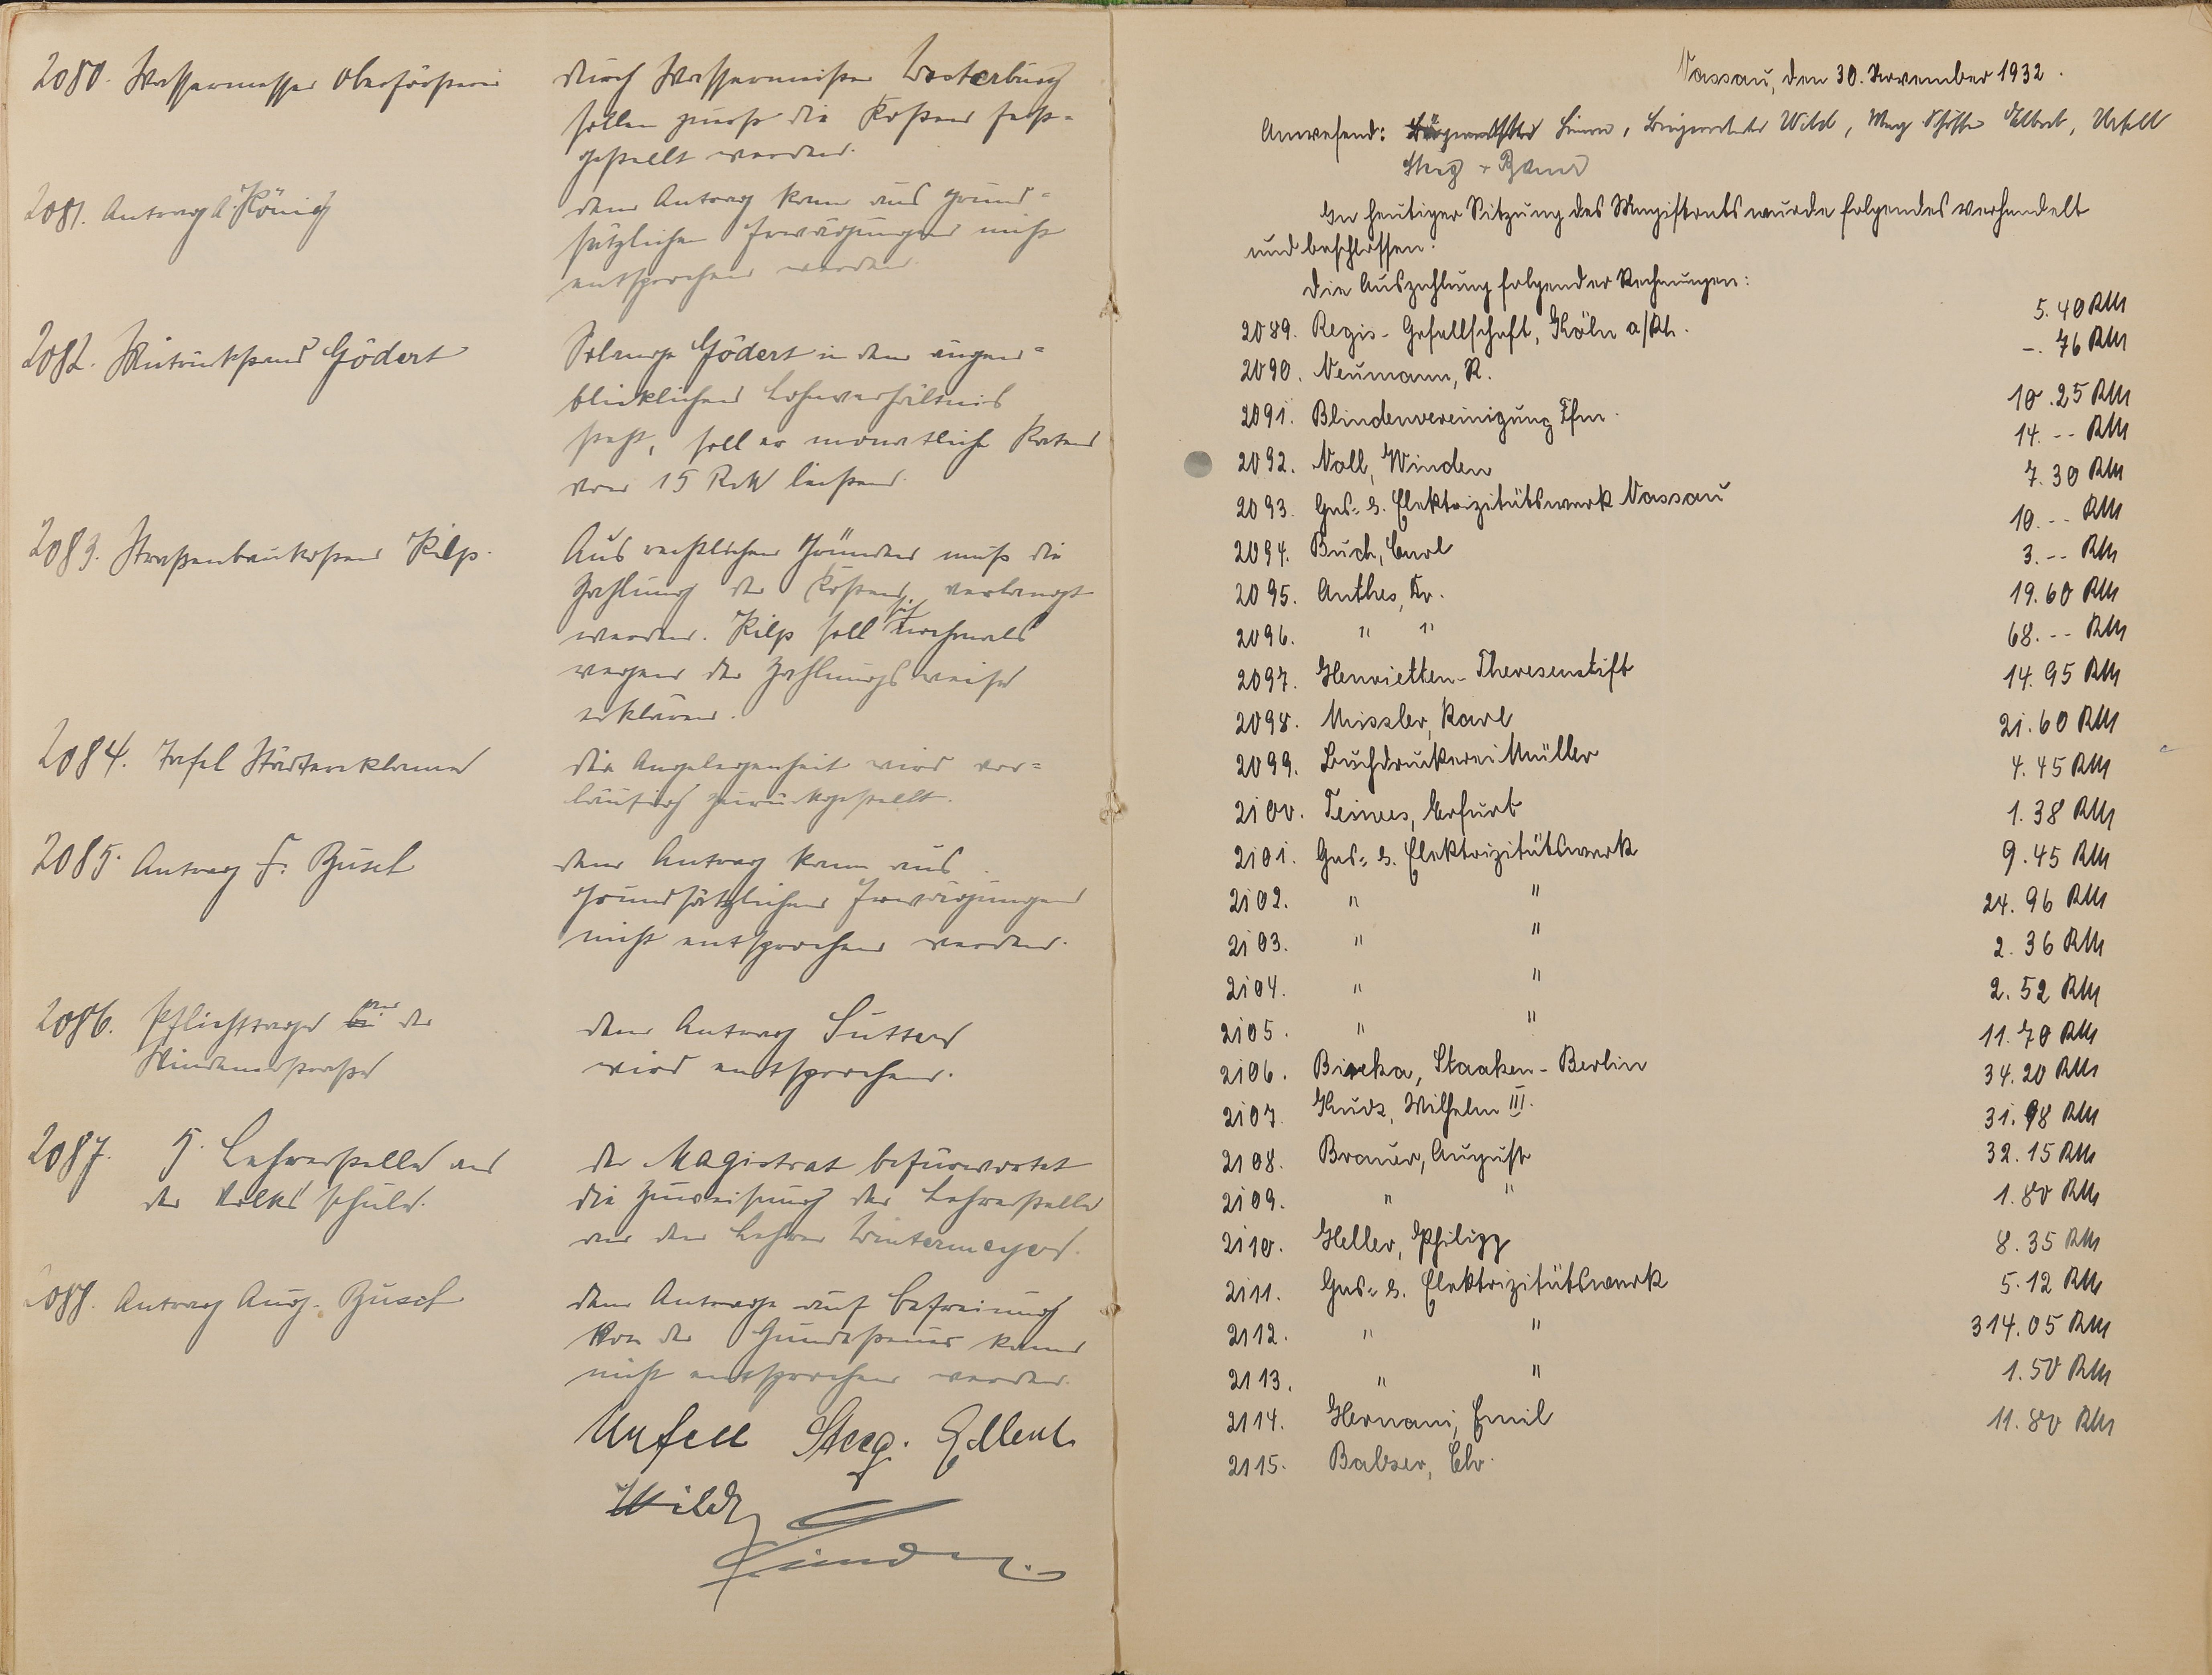 2080. Wassermesser Oberförsterei
durch Wassermeister Westerburg
sollen zuerst die Kosten fest-
gestellt werden.
2081. Antrag A. König
dem Antrag kann aus grund-
sätzlichen Erwägungen nicht
entsprochen werden.
2082. Mietrückstand Gödert
Solange Gödert in dem augen-
blicklichen Lohnverhältnis
steht, soll er monatliche Raten
von 15 RM leisten.
2083. Straßenbaukosten Kilp.
Aus rechtlichen Gründen muß die
Zahlung der Kosten verlangt
werden. Kilp soll sich nochmals
wegen der Zahlungsweise
erklären.
2084. Tafel Städtereklame
die Angelegenheit wird vor-
läufig zurückgestellt.
2085. Antrag F. Busch
dem Antrag kann aus
grundsätzlichen Erwägungen
nicht entsprochen werden.
2086. Pflichttage an der
Windenerstraße
dem Antrag Sutter
wird entsprochen.
2087. 5. Lehrerstelle an
der Volksschule.
der Magistrat befürwortet
die Zuweisung der Lehrerstelle
an den Lehrer Wintermeyer.
2088. Antrag Aug. Busch
dem Antrage auf Befreiung
von der Hundesteuer kann
nicht entsprochen werden.
Unfell Steeg. Ellent
Wild
Nassau, den 30. November 1932.
Anwesend: Beigeordneter Wild, Mag Schöffe Unfell
Steeg +
In heutiger Sitzung des Magistrats wurde folgendes verhandelt
und beschlossen:
Die Auszahlung folgender Rechnungen:
2089. Regis-Gesellschaft, Köln a/Rh. 5.40 RM
2090. Neumann, R. -.76 RM
2091. Blindenvereinigung Ffm. 10.25 RM
2092. Noll, Winden 14.-- RM
2093. Gas- u. Elektrizitätswerk Nassau 7.30 RM
2094. Buch, Carl 10.-- RM
2095. Anthes, Dr. 3.-- RM
2096. " " 19.60 RM
2097. Henrietten-Theresenstift 68.-- RM
2098. Missler, Karl 14.95 RM
2099. Buchdruckerei Müller 21.60 RM
2100. Erfurt 4.45 RM
2101. Gas- u. Elektrizitätswerk 1.38 RM
2102. " " 9.45 RM
2103. " " 24.96 RM
2104. " " 2.36 RM
2105. " " 2.52 RM
2106. Staaken-Berlin 11.70 RM
2107. Wilhelm III. 34.20 RM
2108. Brauer, August 31.98 RM
2109. " " 32.15 RM
2110. Heller, Philipp 1.80 RM
2111. Gas- u. Elektrizitätswerk 8.35 RM
2112. " " 5.12 RM
2113. " " 314.05 RM
2114. Hermani, Emil 1.50 RM
2115. Balzer, Chr. 11.80 RM